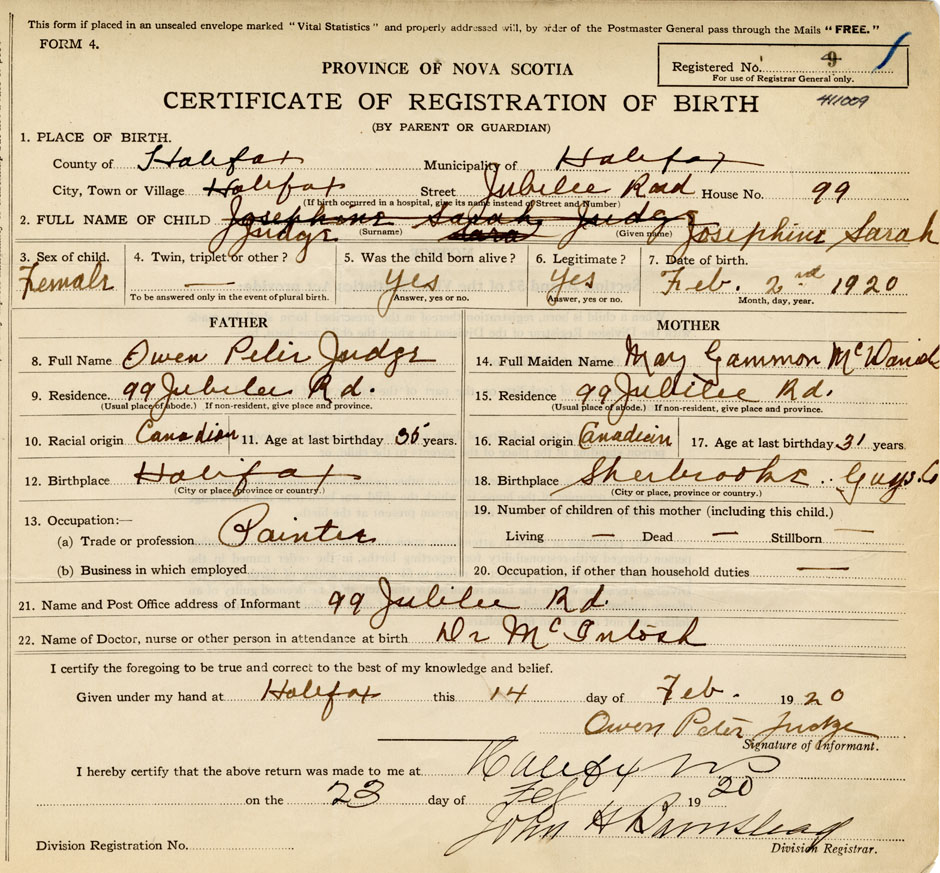 This form if placed in an unsealed envelope marked "Vital Statistics" and properly addressed will, by order of the Postmaster General pass through the Mails "FREE."
FORM 4.
Registered No. 9
For use of Registrar General only.
PROVINCE OF NOVA SCOTIA
CERTIFICATE OF REGISTRATION OF BIRTH
411009
(BY PARENT OR GUARDIAN)
1. PLACE OF BIRTH.
County of Halifax Municipality of Halifax
City, Town or Village Halifax Street Jubilee Road House No. 99
(If birth occurred in a hospital, give its name instead of Street and Number)
2. FULL NAME OF CHILD Josephine Sarah Judge
Judge (Surname) Sara (Given name) Josephine Sarah
3. Sex of child. 4. Twin, triplet or other? 5. Was the child born alive? 6. Legitimate? 7. Date of birth.
Female — yes yes Feb. 2nd 1920
To be answered only in the event of plural birth. Answer, yes or no. Answer, yes or no. Month, day, year.
FATHER MOTHER
8. Full Name Owen Peter Judge 14. Full Maiden Name May Gammon McDaniel
9. Residence. 99 Jubilee Rd. 15. Residence 99 Jubilee Rd.
(Usual place of abode.) If non-resident, give place and province. (Usual place of abode.) If non-resident, give place and province.
10. Racial origin Canadian 11. Age at last birthday 36 years. 16. Racial origin Canadian 17. Age at last birthday 31 years.
12. Birthplace Halifax 18. Birthplace Sherbrooke .. Guys. Co
(City or place, province or country.) (City or place, province or country.)
13. Occupation:— 19. Number of children of this mother (including this child.)
(a) Trade or profession Painter Living — Dead — Stillborn —
(b) Business in which employed 20. Occupation, if other than household duties —
21. Name and Post Office address of Informant 99 Jubilee Rd.
22. Name of Doctor, nurse or other person in attendance at birth Dr McIntosh
I certify the foregoing to be true and correct to the best of my knowledge and belief.
Given under my hand at Halifax this 14 day of Feb. 1920
Owen Peter Judge
Signature of Informant.
I hereby certify that the above return was made to me at Halifax NS
on the 23 day of Feb 1920
John H Barnstead
Division Registration No. Division Registrar.